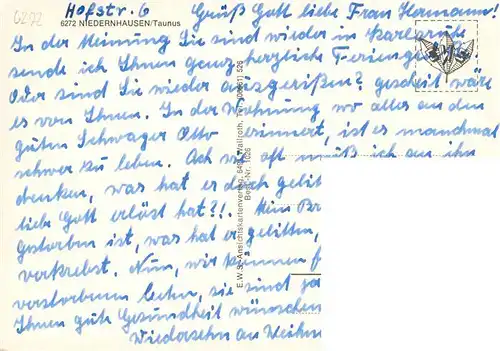 Hofstr. 6 Grüß Gott liebe Frau Hermann!
6272 NIEDERNHAUSEN/Taunus
In der Meinung Sie sind wieder in Karlsruhe
sende ich Ihnen ganz herzliche Feriengr
Oder sind Sie wieder ausgerißen? gescheit wäre
es von Ihnen. In der Wohnung wo alles an den
guten Schwager Otto erinnert, ist es manchmal
schwer zu leben. Ach wie oft muß ich an ihn
denken, was hat er doch gelit
liebe Gott erlöst hat?!. Mein Br
gestorben ist, was hat er gelitten,
verkrebst. Nun, wir können f
verstorbenen beten, sie sind ja
Ihnen gute Gesundheit wünschen
Wiedersehn an Weihn
E.W.S.-Ansichtskartenverlag, Wallroth,
Best.-Nr. 1026